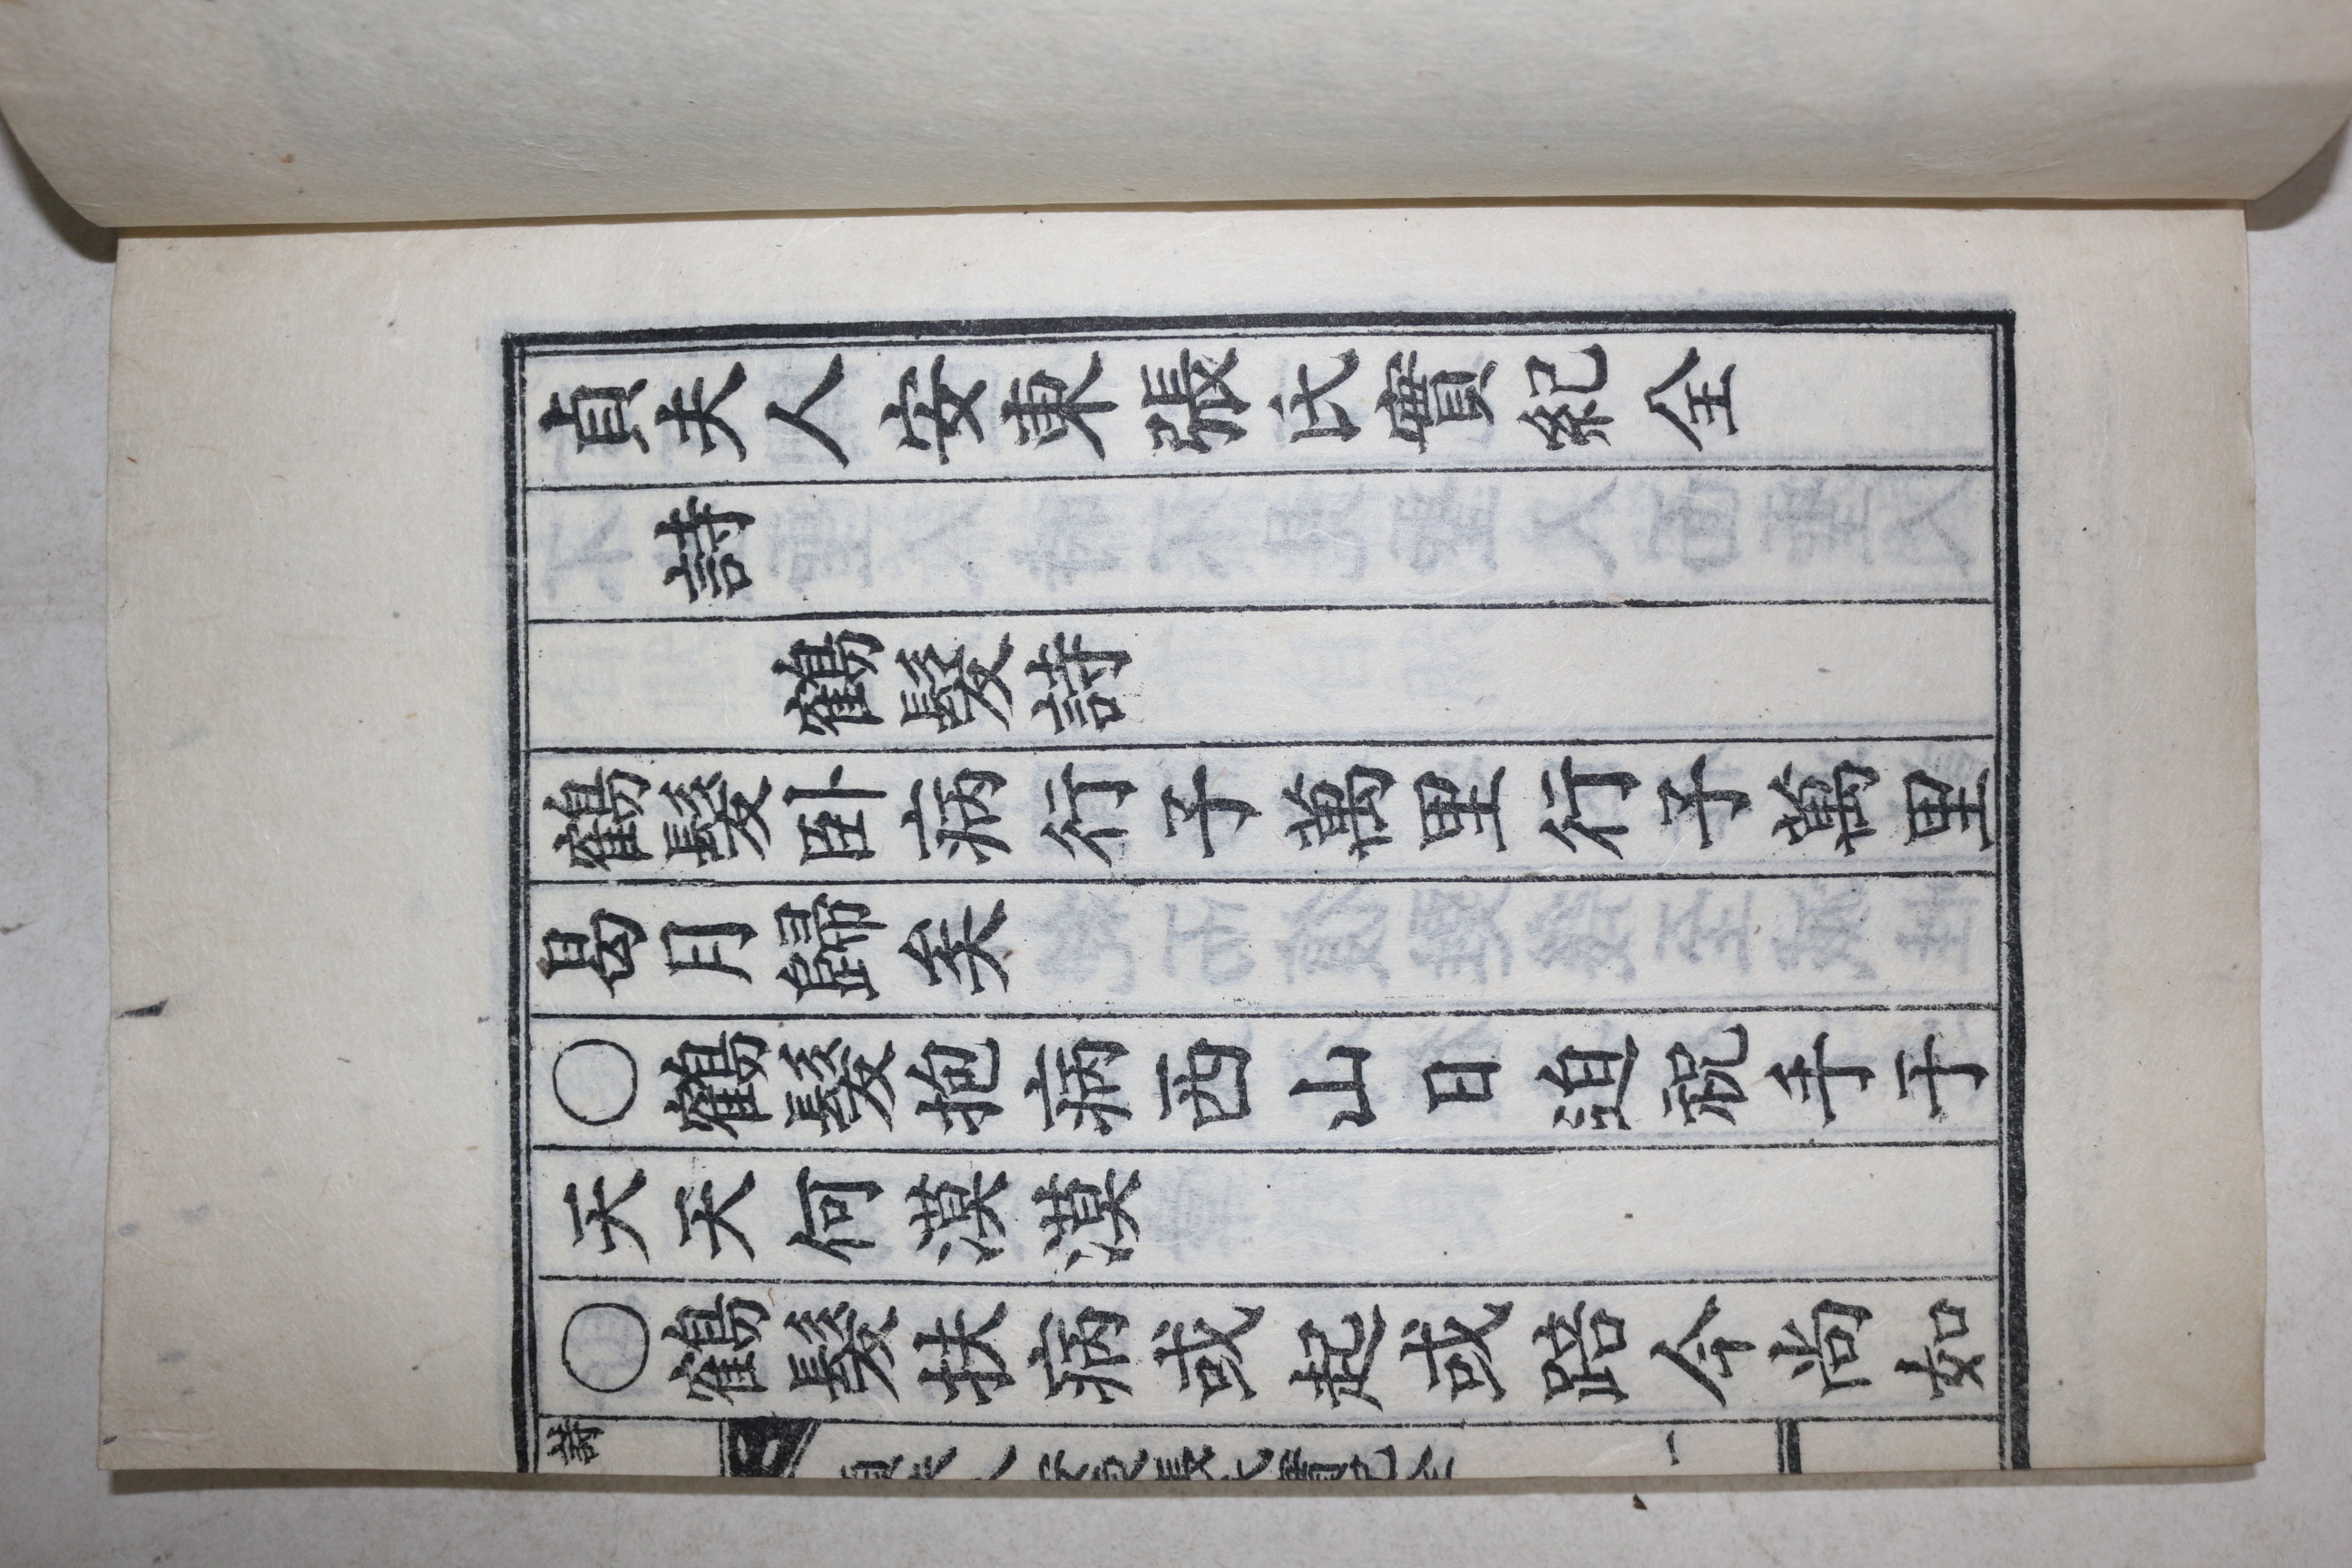 貞夫人安東張氏實紀全
詩
鶴髮詩
鶴髮卧病行子萬里行子萬里
曷月歸矣
○鶴髮抱病西山日迫祝手于
天天何漠漠
○鶴髮扶病或起或踣今尚如